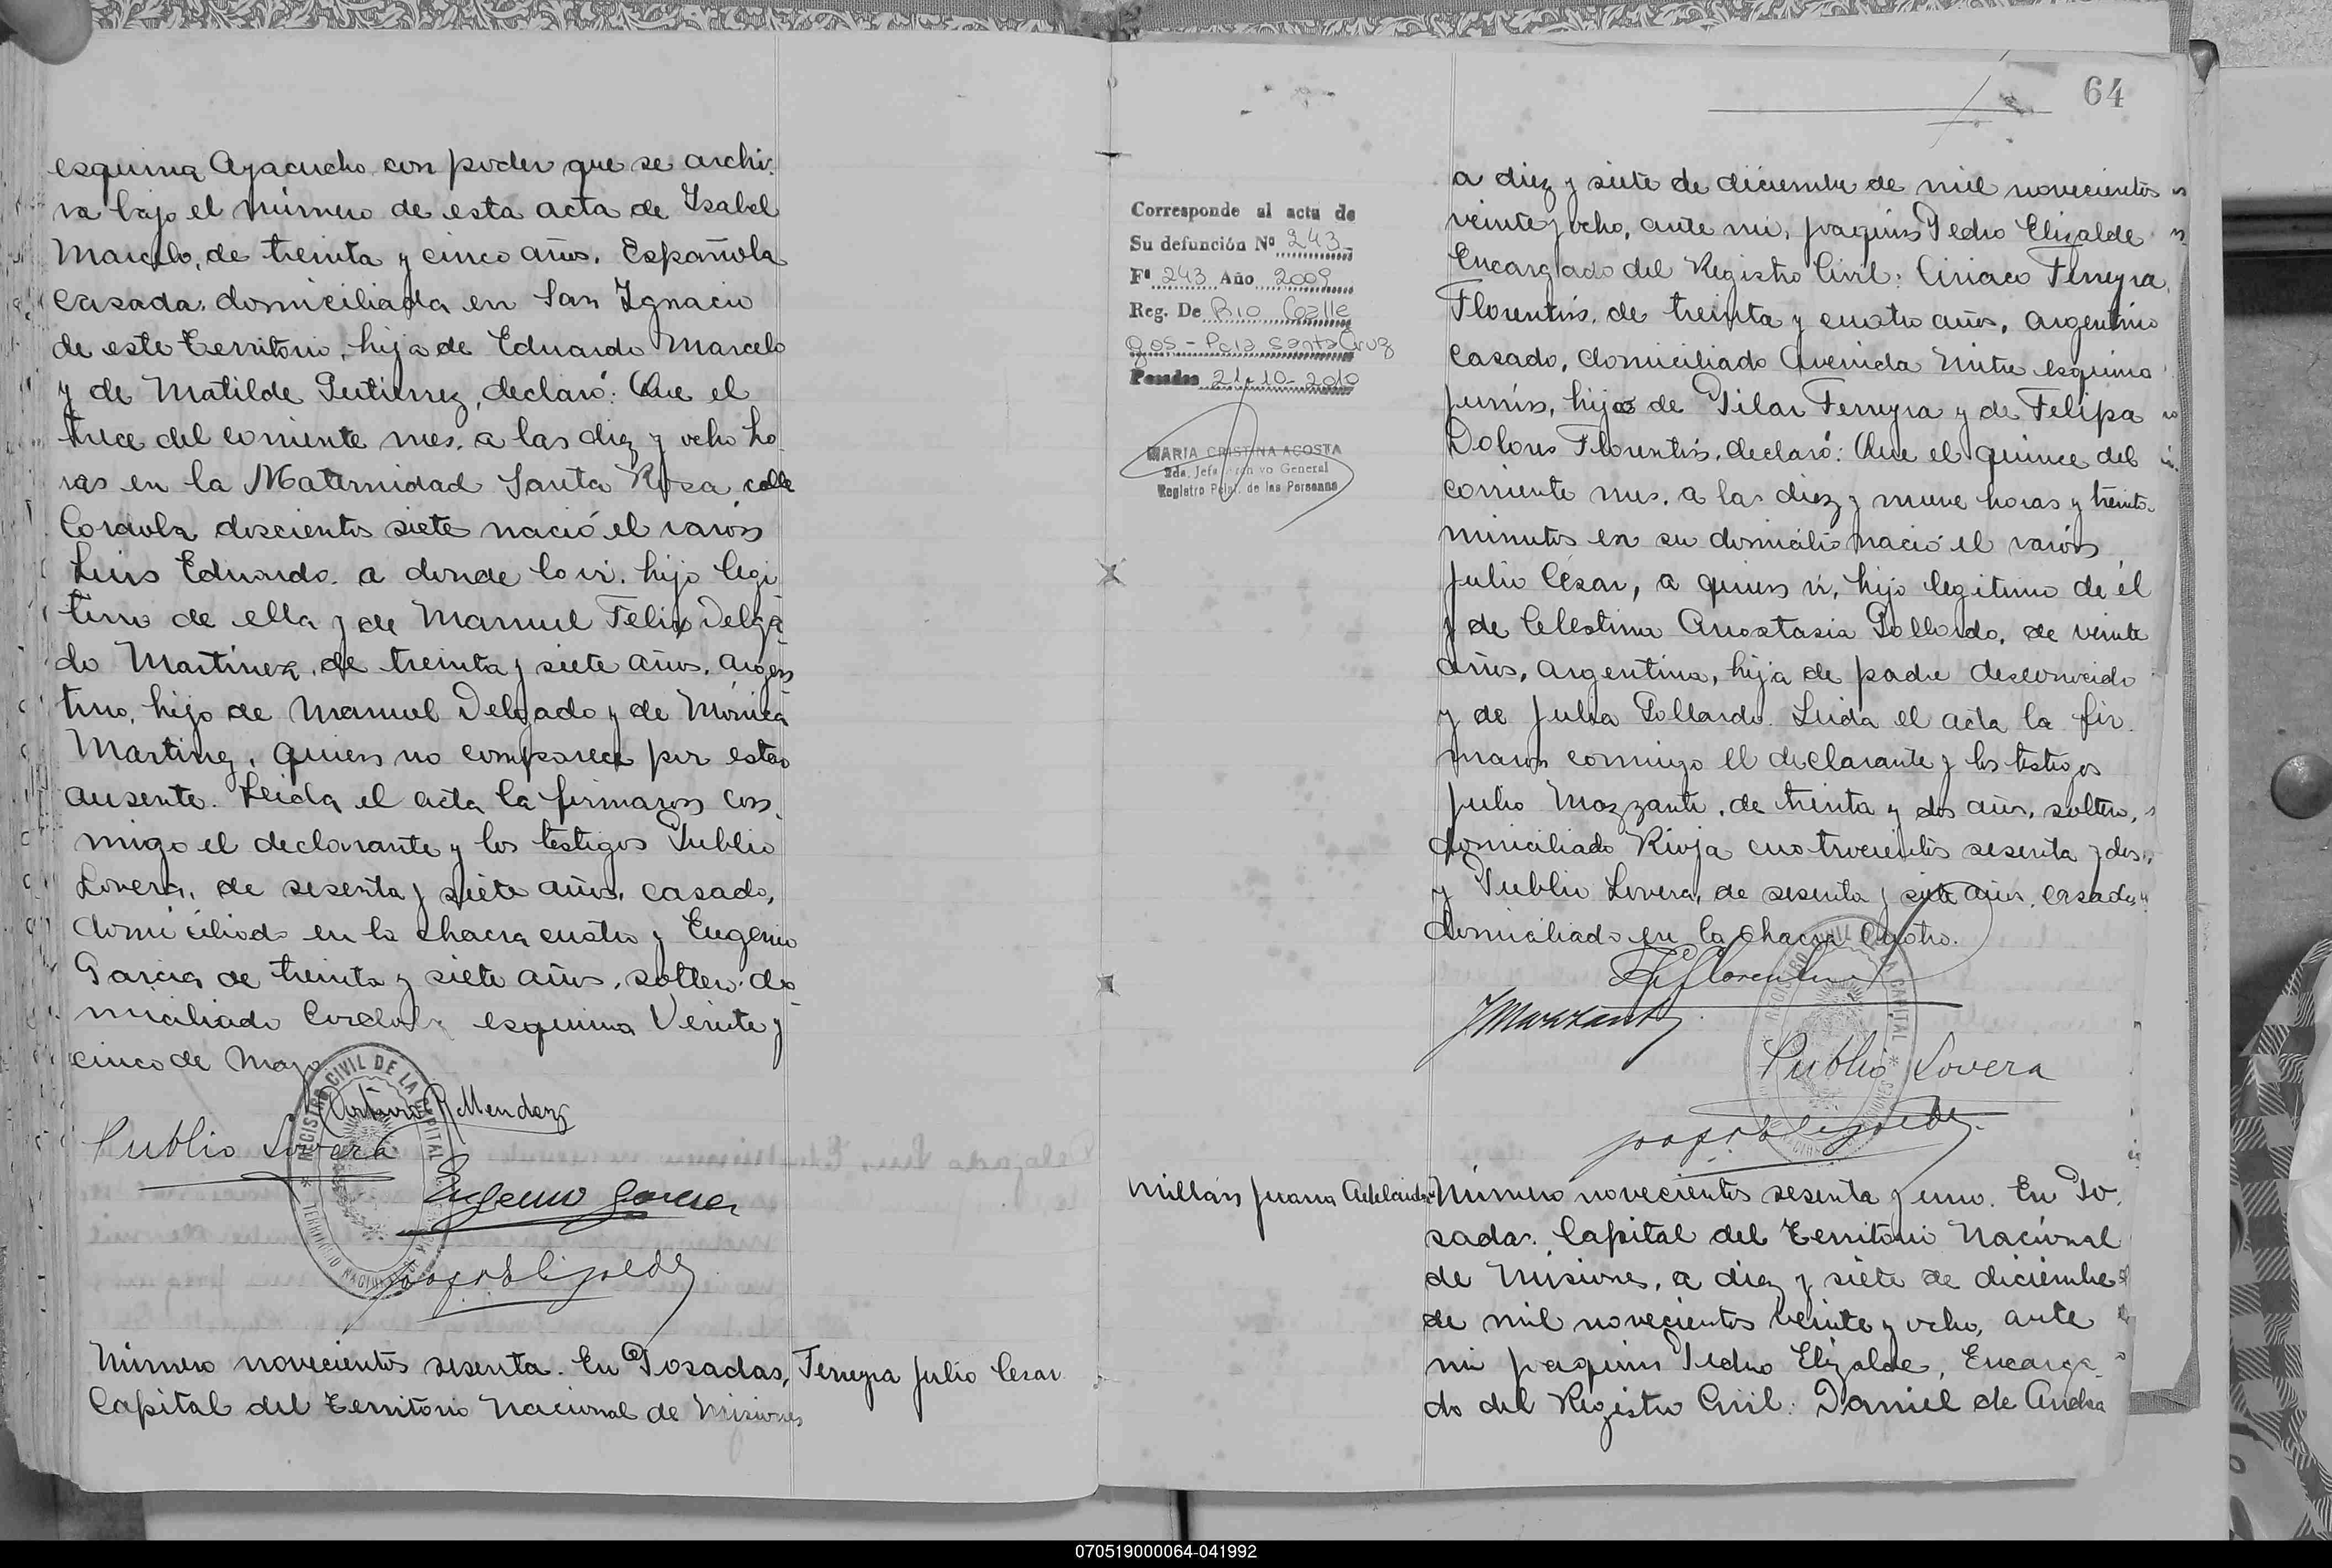 esquina Ayacucho con poder que se archi-
va bajo el número de esta acta de Isabel
Marcelo, de treinta y cinco años, Española
casada, domiciliada en San Ignacio
de este Territorio, hija de Eduardo Marcelo
y de Matilde Gutierrez, declaró: Que el
trece del corriente mes, a las diez y ocho ho-
ras en la Maternidad Santa Rosa, calle
Cordoba doscientos siete nació el varón
Luis Eduardo, a donde lo vi, hijo legi-
timo de ella y de Manuel Felix Delga-
do Martínez, de treinta y siete años, argen-
tino, hijo de Manuel Delgado y de Mónica
Martinez, quien no comparece por estar
ausente. Leida el acta la firmaron con-
migo el declarante y los testigos Publio
Lovera, de sesenta y siete años, casado,
domiciliado en la chacra cuatro y Eugenio
Garcia de treinta y siete años, soltero, do-
miciliado Cordoba esquina Veinte y
cinco de Mayo
Arturo R Mendez
Publio Lovera
Eugenio Garcia
REGISTRO CIVIL DE LA CAPITAL
TERRITORIO NACIONAL
Número novecientos sesenta. En Posadas,
Ferreyra Julio Cesar
Capital del Territorio Nacional de Misiones
64
a diez y siete de diciembre de mil novecientos
veinte y ocho, ante mi, Joaquin Pedro Elizalde
Encargado del Registro Civil: Ciriaco Ferreyra
Florentin, de treinta y cuatro años, argentino
casado, domiciliado Avenida Mitre esquina
Junin, hijo de Pilar Ferreyra y de Felipa
Dolores Florentin, declaró: Que el quince del
corriente mes, a las diez y nueve horas y treinta
minutos en su domicilio nació el varón
Julio César, a quien vi, hijo legitimo de él
y de Celestina Anastasia Gollardo, de veinte
años, argentina, hija de padre desconocido
y de Julia Gollardo. Leida el acta la fir-
maron conmigo el declarante y los testigos
Julio Mazzanti, de treinta y dos años, soltero,
domiciliado Rioja cuatrocientos sesenta y dos,
y Publio Lovera, de sesenta y siete años, casado,
domiciliado en la chacra cuatro.
Florentin
J Mazzanti
Publio Lovera
REGISTRO CIVIL DE LA CAPITAL
Corresponde al acta de
Su defunción Nº 243
Fº 243 Año 2009
Reg. De Rio Galle
gos - Pcia Santa Cruz
Posadas 21-10-2010
MARIA CRISTINA ACOSTA
2da. Jefa Archivo General
Registro Pcial. de las Personas
Millán Juana Adelaida
Número novecientos sesenta y uno. En Po-
sadas, Capital del Territorio Nacional
de Misiones, a diez y siete de diciembre
de mil novecientos veinte y ocho, ante
mi Joaquin Pedro Elizalde, Encarga-
do del Registro Civil: Daniel de Andra
070519000064-041992